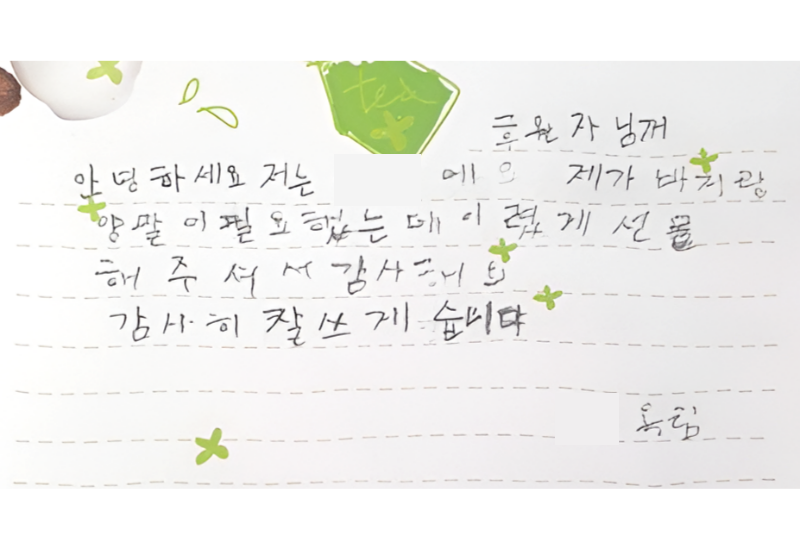 tea
후원자님께
안녕하세요 저는 에요 제가 바지랑
양말이 필요했는데 이렇게 선물
해주셔서 감사해요
감사히 잘쓰게 습니다
옥림